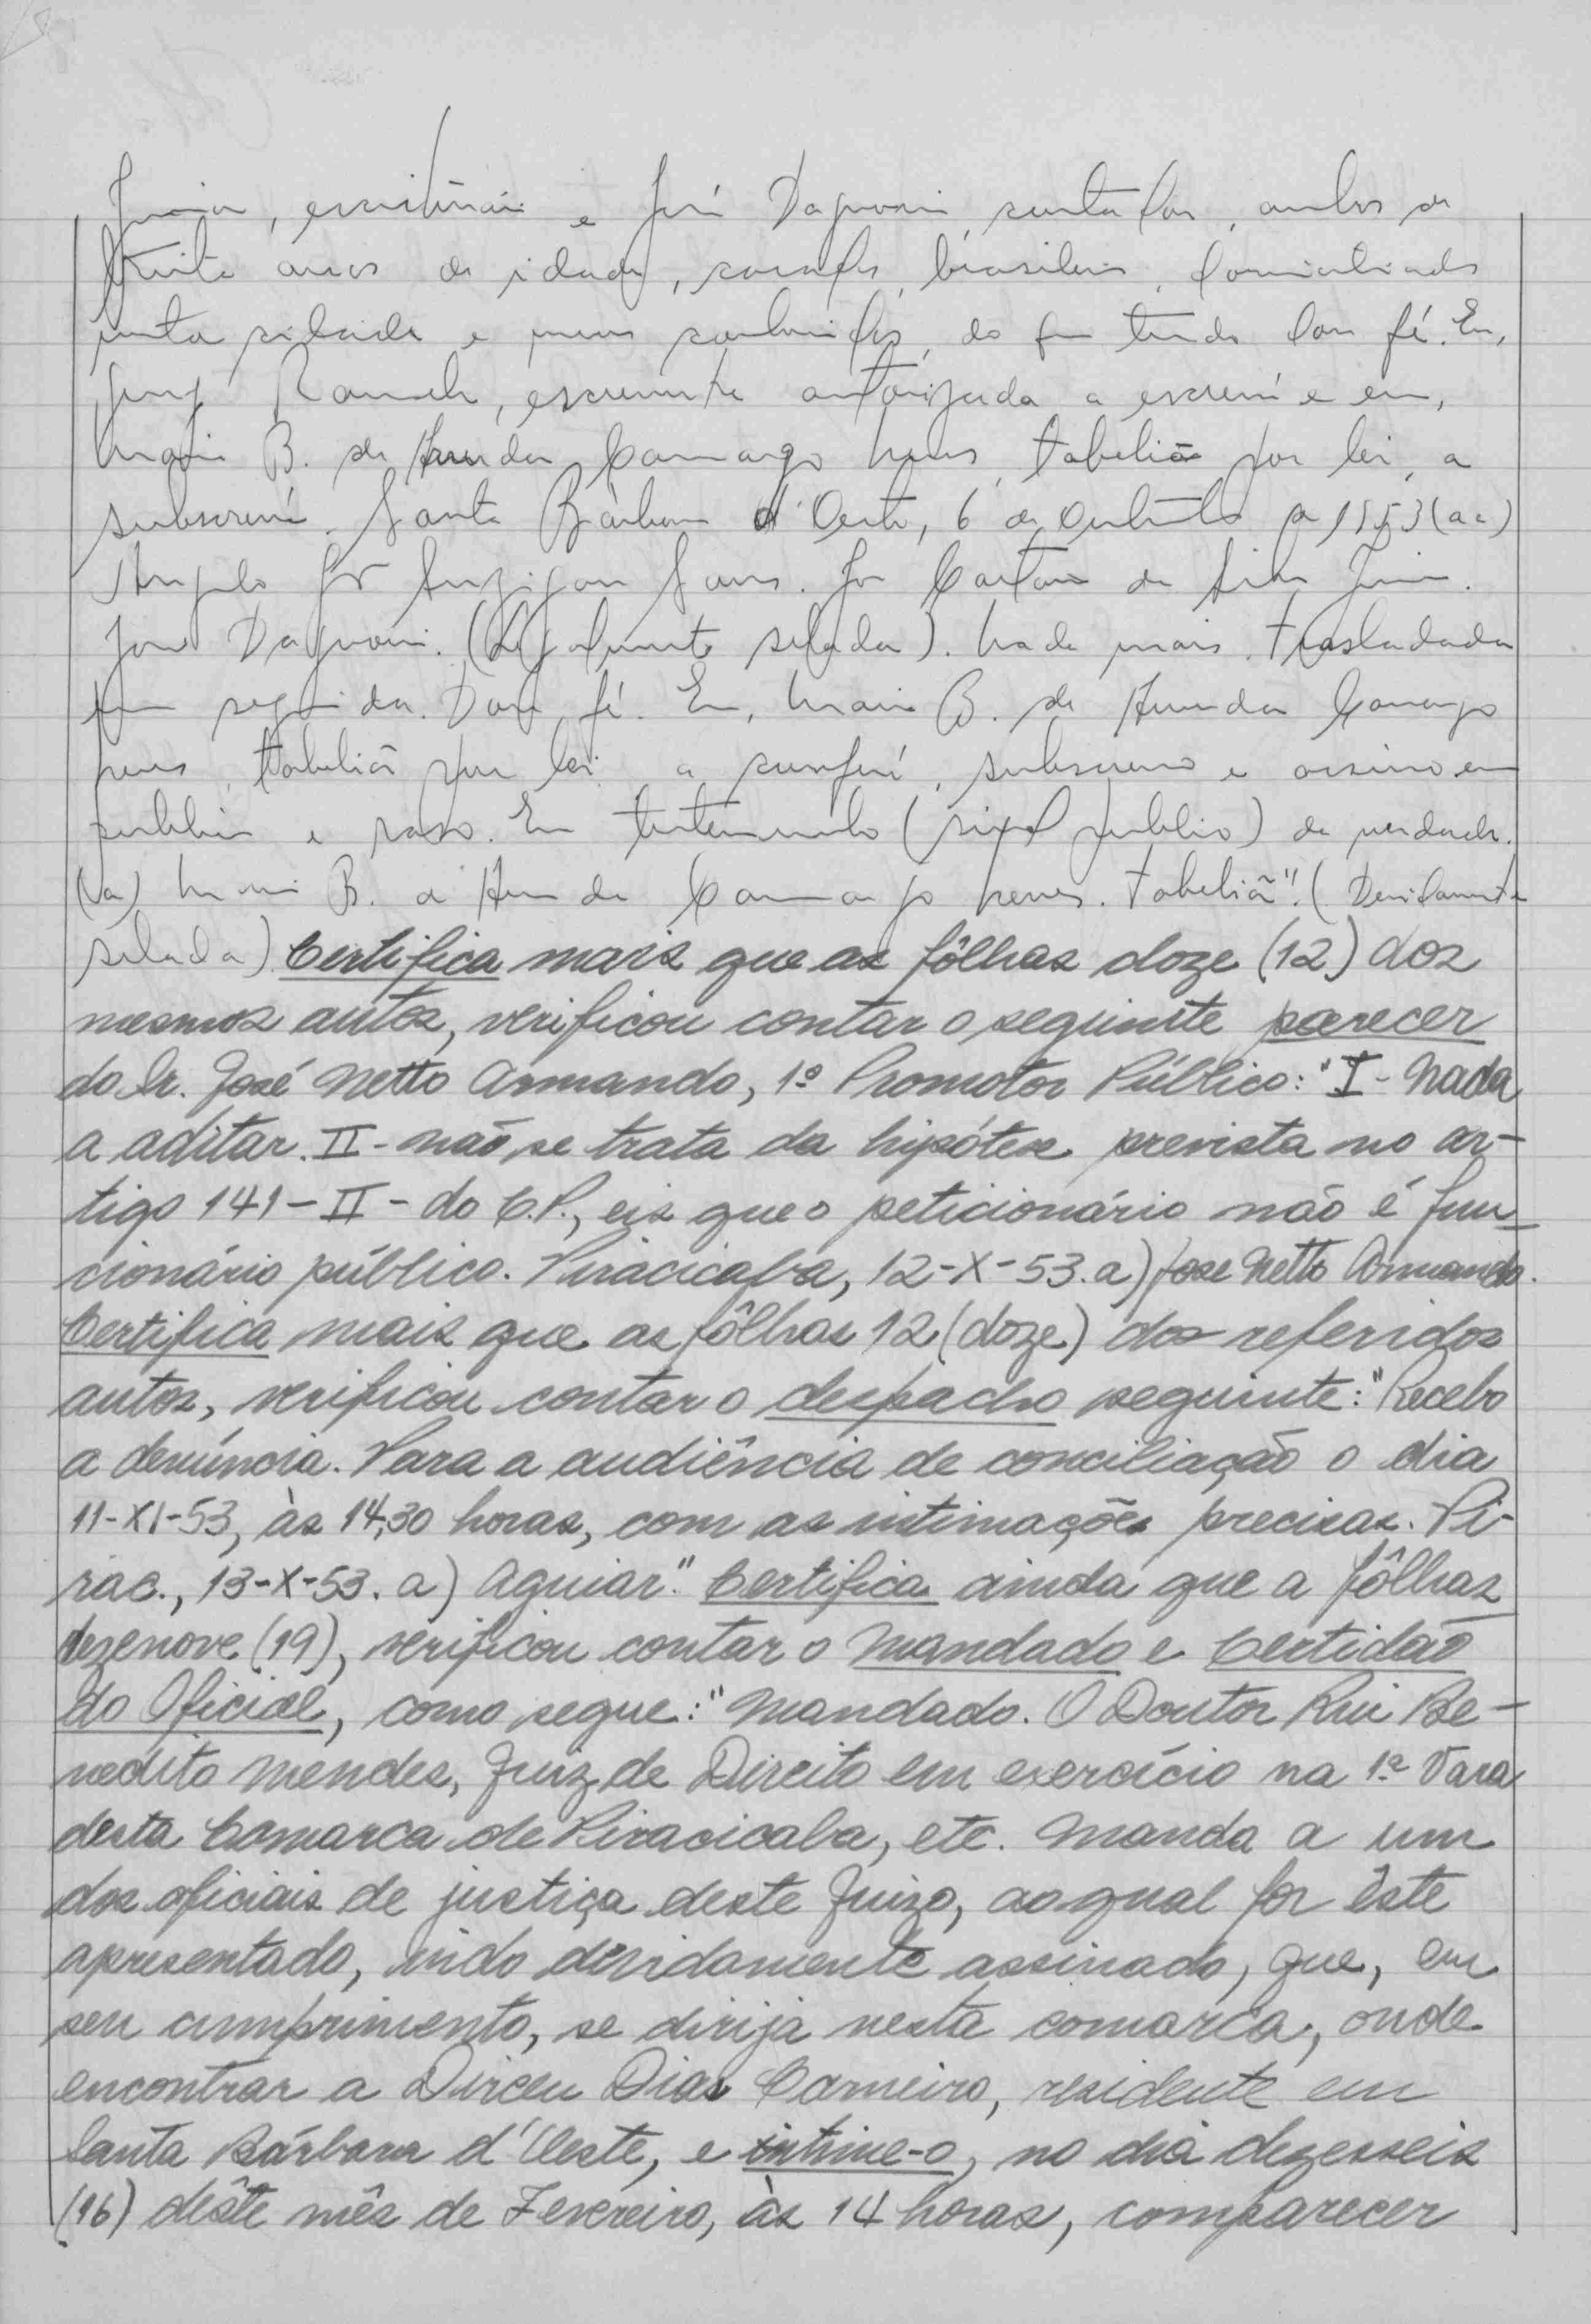 Junior, escriturário e José Dagnoni, contador, ambos de
trinta anos de idade, casados, brasileiros, domiciliados
nesta cidade e meus conhecidos, do que tudo dou fé. Eu,
escrevente autorizada a escreví e eu,
Maria B. de Arruda Camargo Neves, tabeliã por lei, a
subscreví. Santa Bárbara d'Oeste, 6 de Outubro de 1953 (aa)
Angelo Jose Caetano da Silva Junior.
José Dagnoni. (Legalmente selada). Nada mais. Trasladada
em seguida. Dou fé. Eu, Maria B. de Arruda Camargo
Neves, tabeliã por lei a conferí, subscrevo e assino em
publico e raso. Em testemunho (sinal publico) da verdade.
(a) Maria B. de Arruda Camargo Neves. Tabeliã". (Devidamente
selada). Certifica mais que as fôlhas doze (12) dos
mesmos autos, verificou contar o seguinte parecer
do Dr. José Netto Armando, 1º Promotor Público: "I - Nada
a aditar. II - não se trata da hipótese prevista no ar-
tigo 141 - II - do C.P., eis que o peticionário não é fun-
cionário público. Piracicaba, 12-X-53. a) Jose Netto Armando.
Certifica mais que as fôlhas 12 (doze) dos referidos
autos, verificou contar o despacho seguinte: "Recebo
a denúncia. Para a audiência de conciliação o dia
11-XI-53, às 14,30 horas, com as intimações precisas. Pi-
rac., 13-X-53. a) Aguiar". Certifica ainda que a fôlhas
dezenove (19), verificou contar o Mandado e Certidão
do Oficial, como segue: "Mandado. O Doutor Rui Be-
nedito Mendes, Juiz de Direito em exercício na 1ª Vara
desta Comarca de Piracicaba, etc. Manda a um
dos oficiais de justiça deste Juizo, ao qual for êste
apresentado, indo devidamente assinado, que, em
seu cumprimento, se dirija nesta comarca, onde
encontrar a Dirceu Dias Carneiro, residente em
Santa Bárbara d'Oeste, e intime-o, no dia dezesseis
(16) dêste mês de Fevereiro, às 14 horas, comparecer